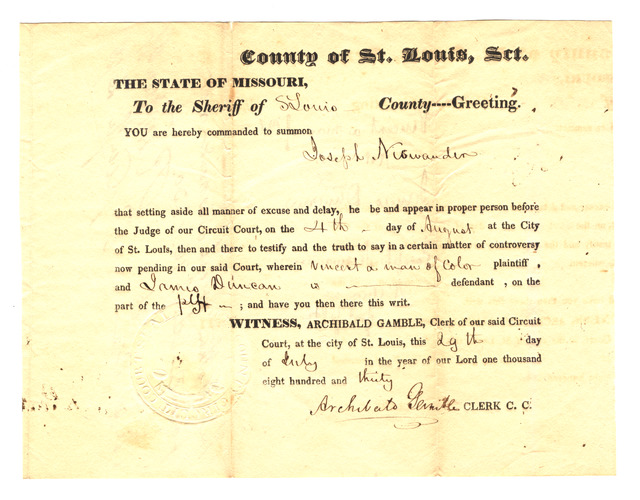 County of St. Louis, Sct.
THE STATE OF MISSOURI,
To the Sheriff of St Louis County----Greeting.
YOU are hereby commanded to summon
Joseph Niswander
that setting aside all manner of excuse and delay, he be and appear in proper person before
the Judge of our Circuit Court, on the 4th day of August at the City
of St. Louis, then and there to testify and the truth to say in a certain matter of controversy
now pending in our said Court, wherein Vincent a man of Color plaintiff,
and James Duncan is defendant, on the
part of the plff ; and have you then there this writ.
WITNESS, ARCHIBALD GAMBLE, Clerk of our said Circuit
Court, at the city of St. Louis, this 29th day
of July in the year of our Lord one thousand
eight hundred and thirty
Archibald Gamble CLERK C. C.